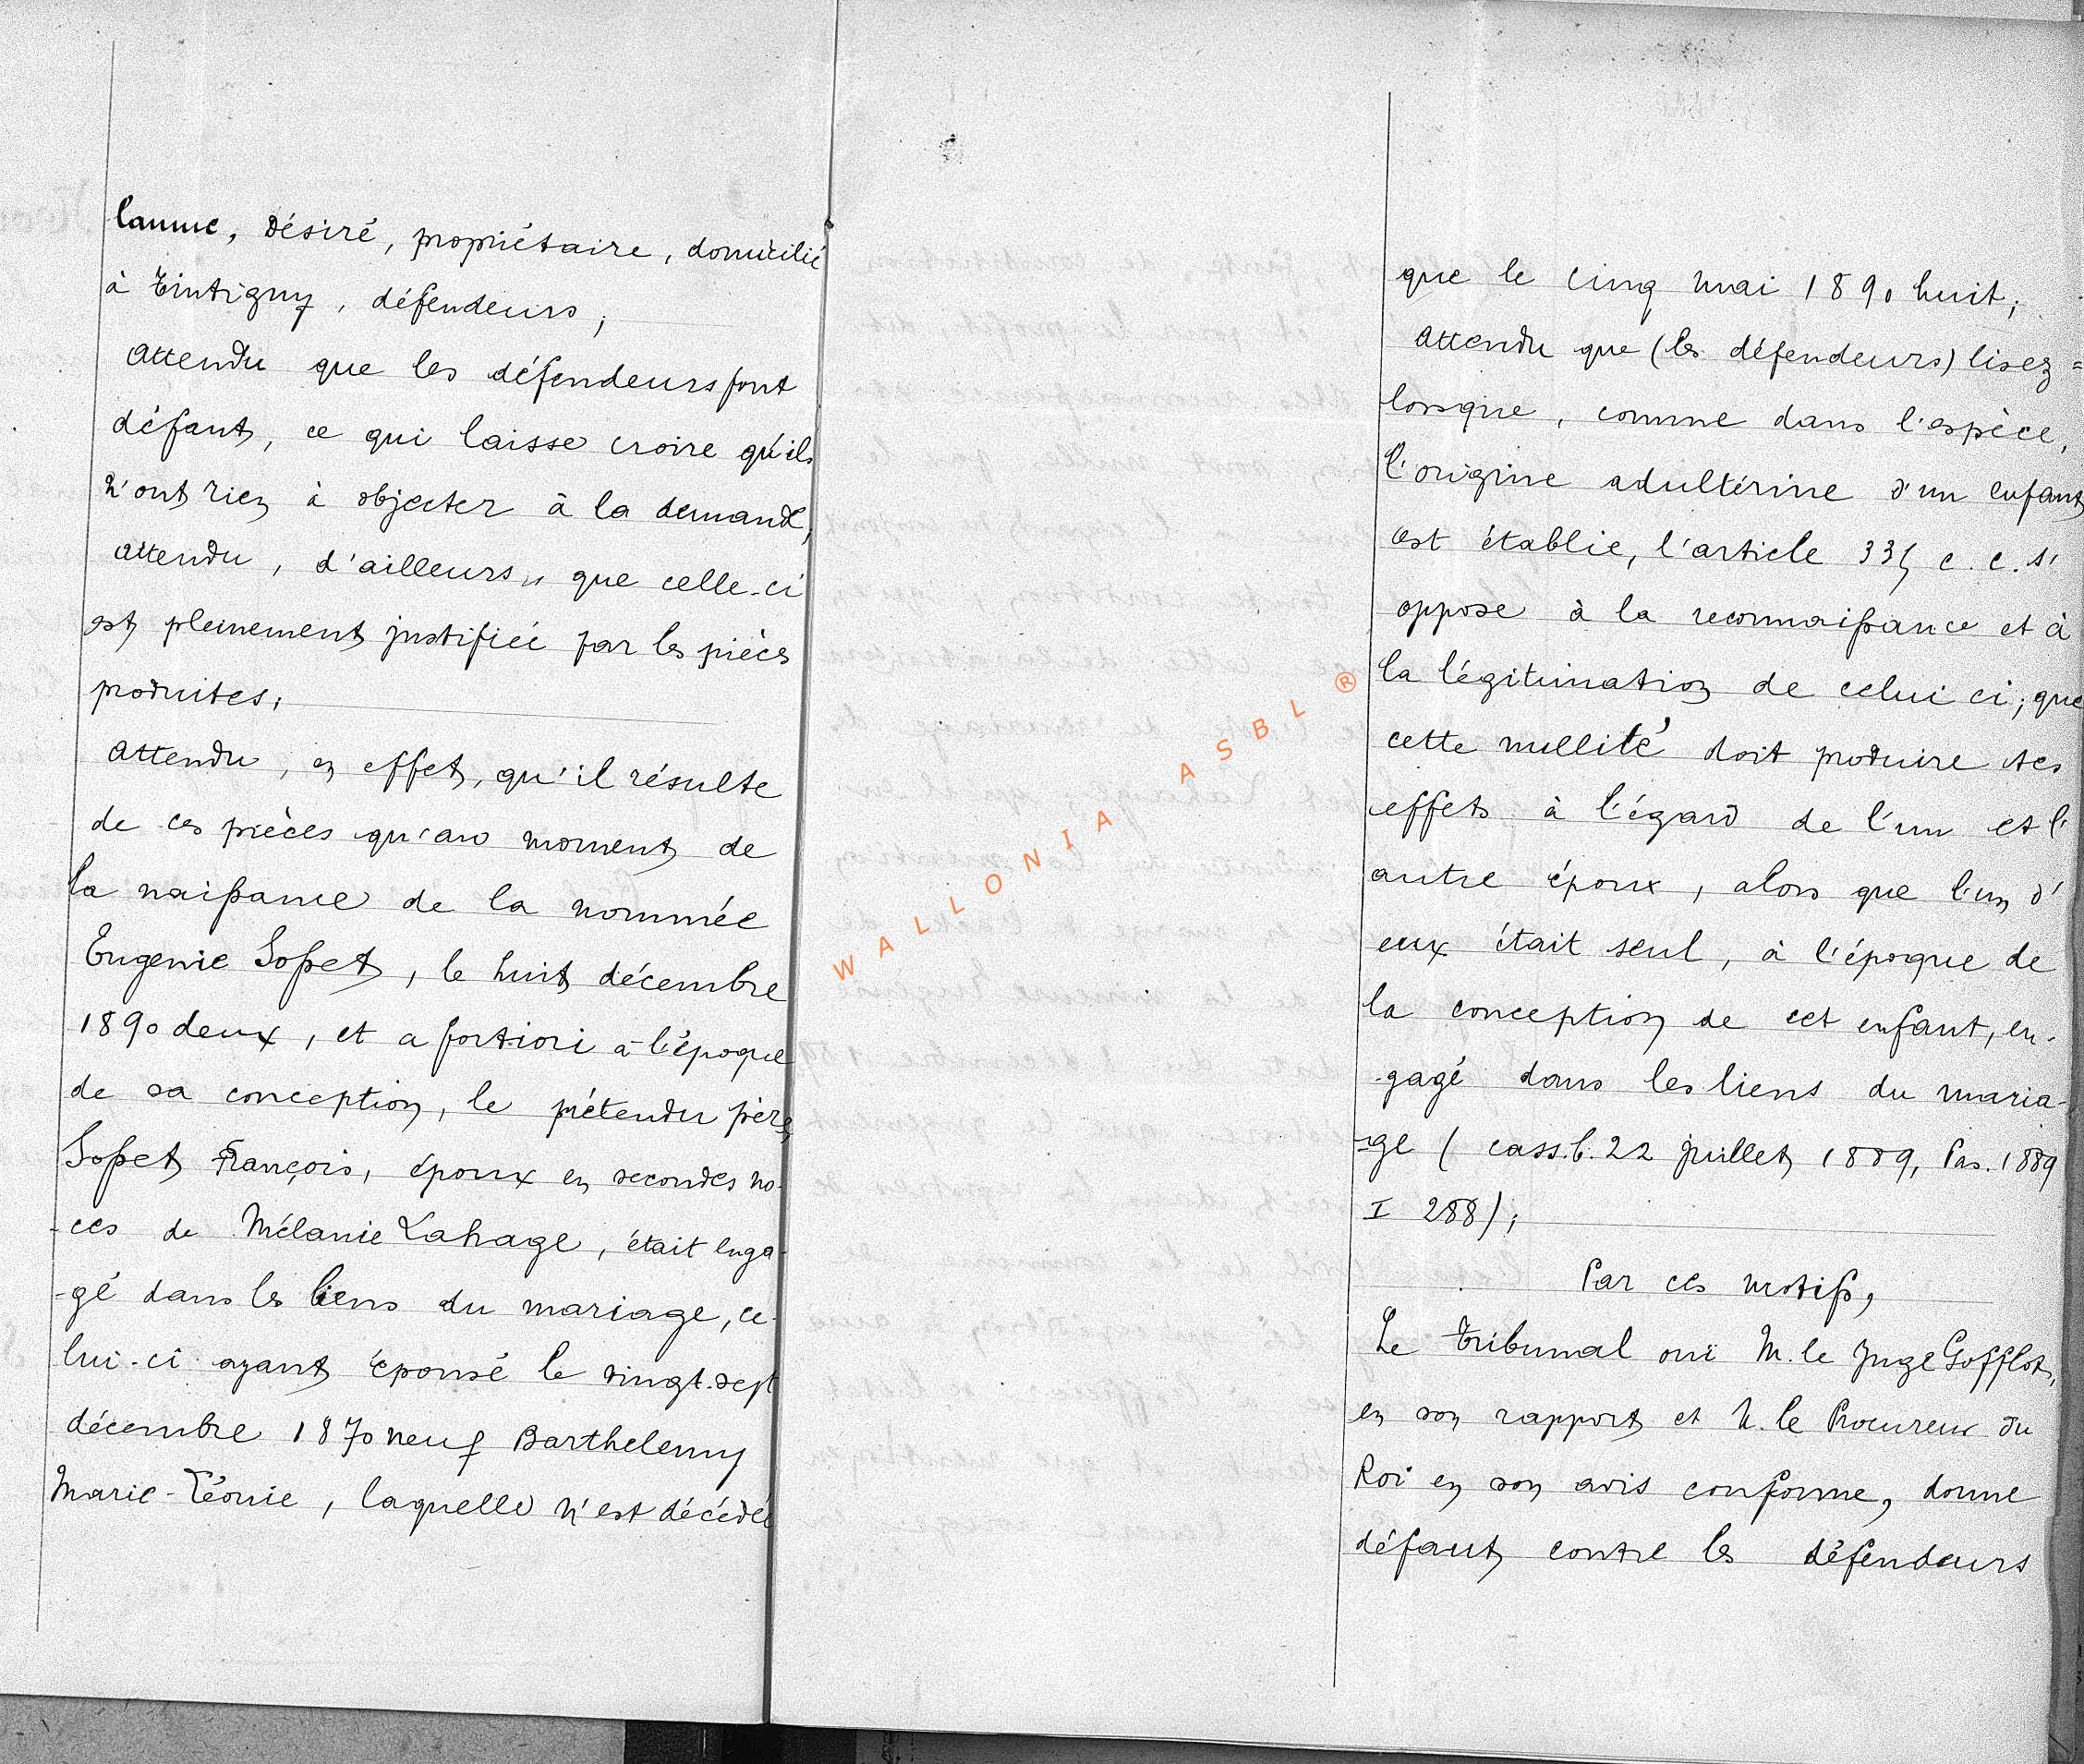 lamme, Désiré, propriétaire, domicilié
à Tintigny, défendeurs;
Attendu que les défendeurs font
défaut, ce qui laisse croire qu'ils
n'ont rien à objecter à la demande;
Attendu, d'ailleurs, que celle-ci
est pleinement justifiée par les pièces
produites;
Attendu, en effet, qu'il résulte
de ces pièces qu'au moment de
la naissance de la nommée
Eugenie Sosset, le huit décembre
1890 deux, et a fortiori à l'époque
de sa conception, le prétendu père,
Sosset François, époux en secondes no-
-ces de Mélanie Lahage, était enga-
-gé dans les liens du mariage, ce-
lui-ci ayant épousé le vingt-sept
décembre 1870 neuf Barthelemy
Marie-Léonie, laquelle n'est décédée
que le cinq mai 1890 huit;
Attendu que (les défendeurs) lisez =
lorsque, comme dans l'espèce,
l'origine adultérine d'un enfant
est établie, l'article 335 c. c. s'
oppose à la reconnaissance et à
la légitimation de celui ci; que
cette nullité doit produire ses
effets à l'égard de l'un et l'
autre époux, alors que l'un d'
eux était seul, à l'époque de
la conception de cet enfant, en-
-gagé dans les liens du maria-
-ge ( cass. b. 22 juillet 1889, Pas. 1889
I 288);
Par ces motifs,
Le Tribunal ouï M. le Juge Gofflot,
en son rapport et M. le Procureur du
Roi en son avis conforme, donne
défaut contre les défendeurs
WALLONIA ASBL ®